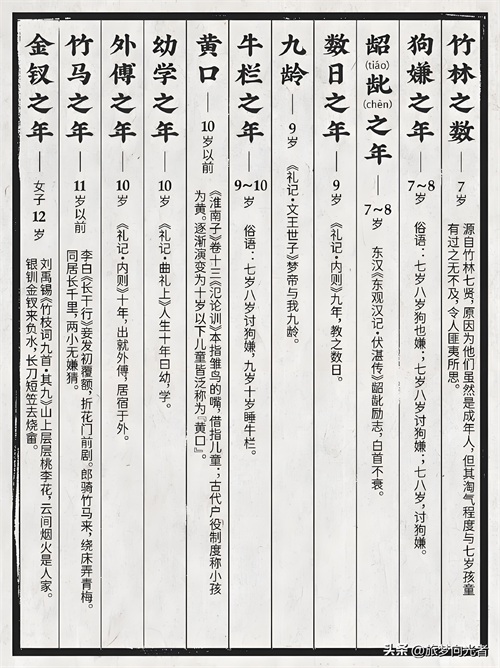 竹林之数——7岁
源自竹林七贤，原因为他们虽然是成年人，但其淘气程度与七岁孩童
有过之无不及，令人匪夷所思。
狗嫌之年——7~8岁
俗语：七岁八岁狗也嫌；七岁八岁讨狗嫌；七八岁，讨狗嫌。
龆(tiáo)龀(chèn)之年——7~8岁
东汉《东观汉记·伏湛传》龆龀励志，白首不衰。
数日之年——9岁
《礼记·内则》九年，教之数日。
九龄——9岁
《礼记·文王世子》梦帝与我九龄。
牛栏之年——9~10岁
俗语：七岁八岁讨狗嫌，九岁十岁睡牛栏。
黄口——10岁以前
《淮南子》卷十三《氾论训》本指雏鸟的嘴，借指儿童；古代户役制度称小孩
为黄。逐渐演变为十岁以下儿童皆泛称为『黄口』。
幼学之年——10岁
《礼记·曲礼上》人生十年曰幼，学。
外傅之年——10岁
《礼记·内则》十年，出就外傅，居宿于外。
竹马之年——11岁以前
李白《长干行》妾发初覆额，折花门前剧。郎骑竹马来，绕床弄青梅。
同居长千里，两小无嫌猜。
金钗之年——女子12岁
刘禹锡《竹枝词九首·其九》山上层层桃李花，云间烟火是人家。
银钏金钗来负水，长刀短笠去烧畲。
头条@旅梦问光者